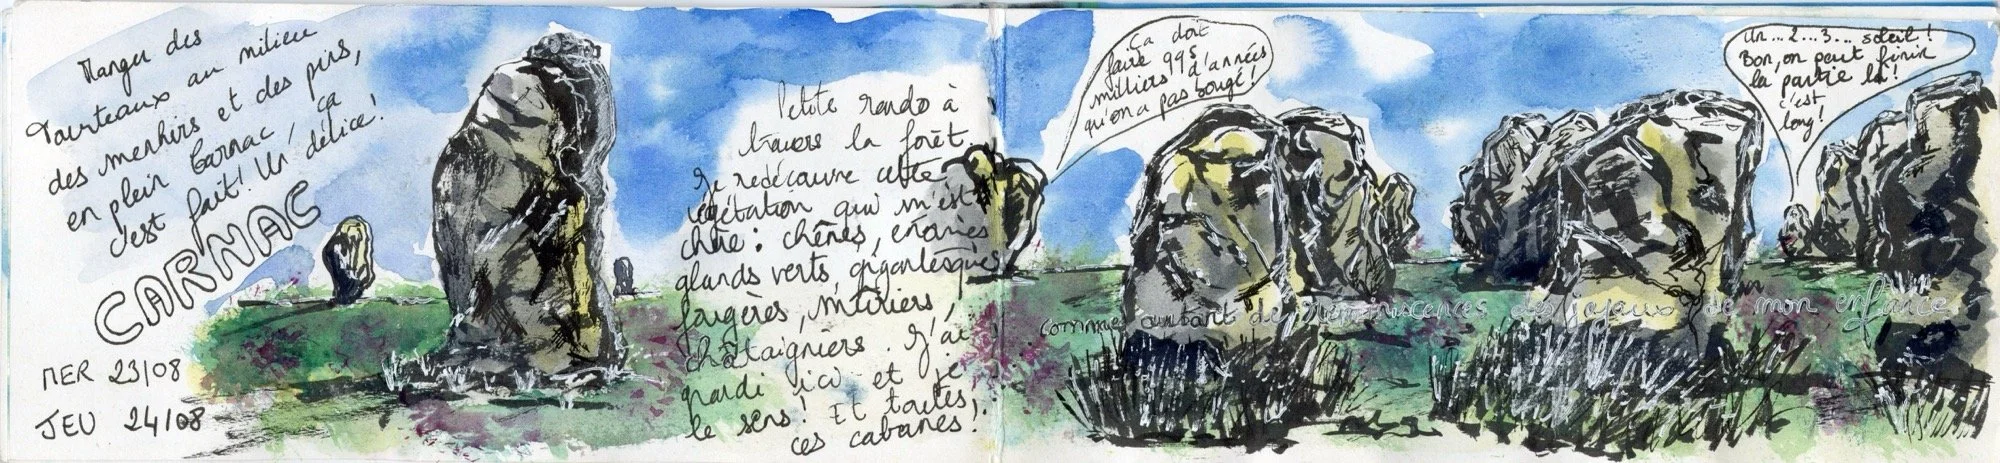 Manger des
Tourteaux au milieu
des menhirs et des pins,
en plein Carnac, ça
c'est fait! Un délice!
CARNAC
MER 23/08
JEU 24/08
Petite rando à
travers la forêt.
Je redécouvre cette
végétation qui m'est
chère : chênes, énormes
glands verts, gigantesques
fougères, mûriers,
châtaigniers. J'ai
grandi ici et je
le sens! Et toutes
ces cabanes!
comme autant de réminiscences des joyaux de mon enfance
ça doit
faire 995
milliers d'années
qu'on a pas bougé!
Un...2...3... soleil!
Bon, on peut finir
la partie là!
c'est
long!